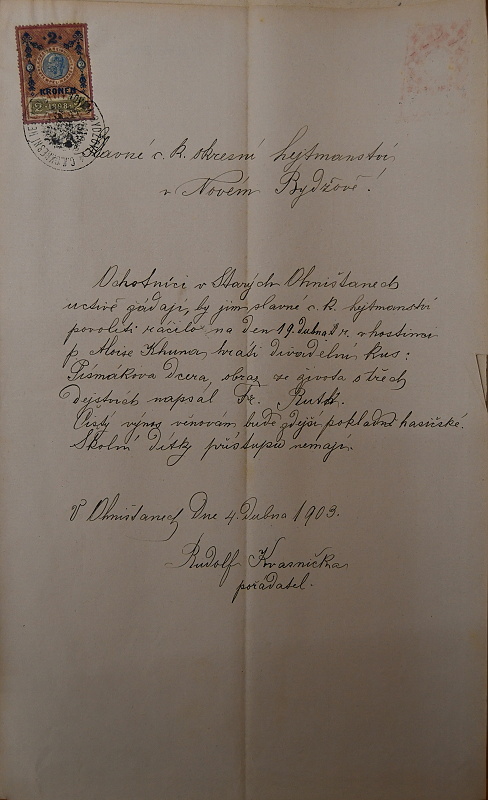 2
KRONEN
2 1898
Slavné c. k. okresní hejtmanství
v Novém Bydžově!
Ochotníci v Starých Ohništanech
uctivě žádají, by jim slavné c. k. hejtmanství
povoliti ráčilo na den 19. dubna t. r. v hostinci
p. Aloise Khuna hráti divadelní kus:
Písmákova Dcera, obraz ze života o třech
dejstvích napsal Fr. Ruth.
Čistý výnos věnován bude zdejší pokladně hasičské.
Školní dítky přístupu nemají.
V Ohništanech Dne 4. Dubna 1903.
Rudolf Kvasnička
pořádatel.